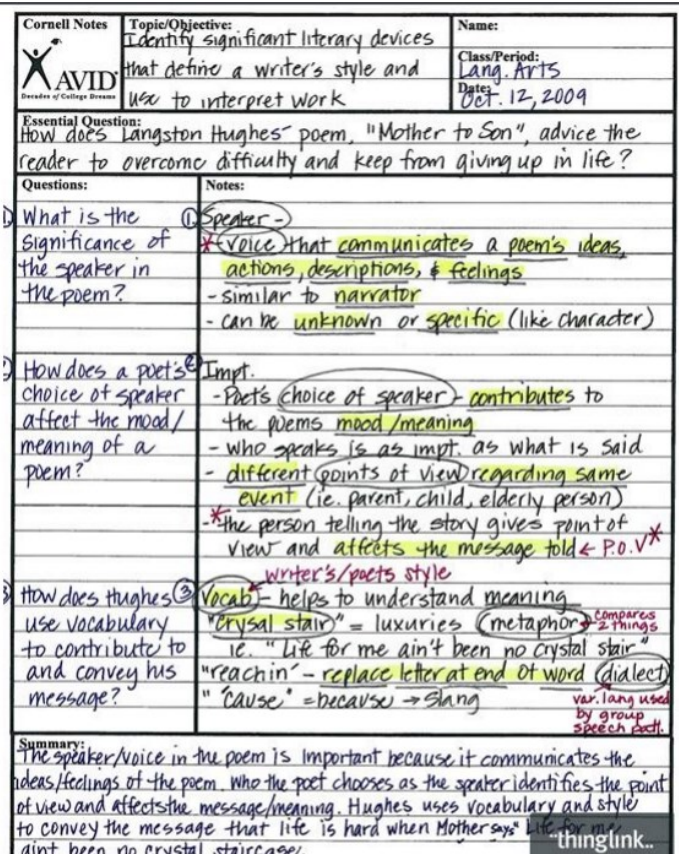 Cornell Notes
AVID
Decades of College Dreams
Topic/Objective:
Identify significant literary devices
that define a writer's style and
use to interpret work
Name:
Class/Period:
Lang. Arts
Date:
Oct. 12, 2009
Essential Question:
How does Langston Hughes' poem, "Mother to Son", advice the
reader to overcome difficulty and keep from giving up in life?
Questions:
What is the
significance of
the speaker in
the poem?
How does a poet's
choice of speaker
affect the mood/
meaning of a
poem?
How does Hughes
use vocabulary
to contribute to
and convey his
message?
Notes:
① Speaker -
* voice that communicates a poem's ideas,
actions, descriptions, & feelings
- similar to narrator
- can be unknown or specific (like character)
② Impt.
- Poet's choice of speaker - contributes to
the poems mood/meaning
- who speaks is as impt. as what is said
- different points of view regarding same
event (ie. parent, child, elderly person)
- *the person telling the story gives point of
view and affects the message told ← P.O.V*
writer's/poets style
③ Vocab - helps to understand meaning
"crysal stair" = luxuries metaphor → compares 2 things
ie. "Life for me ain't been no crystal stair"
"reachin" - replace letter at end of word dialect
" 'cause" = because → slang
var. lang used
by group
speech
Summary:
The speaker/voice in the poem is important because it communicates the
ideas/feelings of the poem. Who the poet chooses as the speaker identifies the point
of view and affects the message/meaning. Hughes uses vocabulary and style
to convey the message that life is hard when Mother says "Life for me
aint been no crystal staircase.
thinglink..